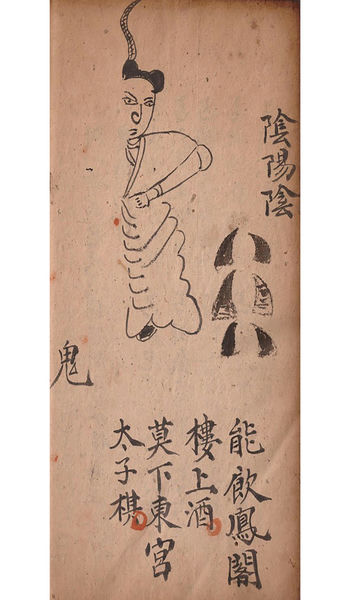 陰陽陰
鬼
能飲鳳閣
樓上酒
莫下東宮
太子棋